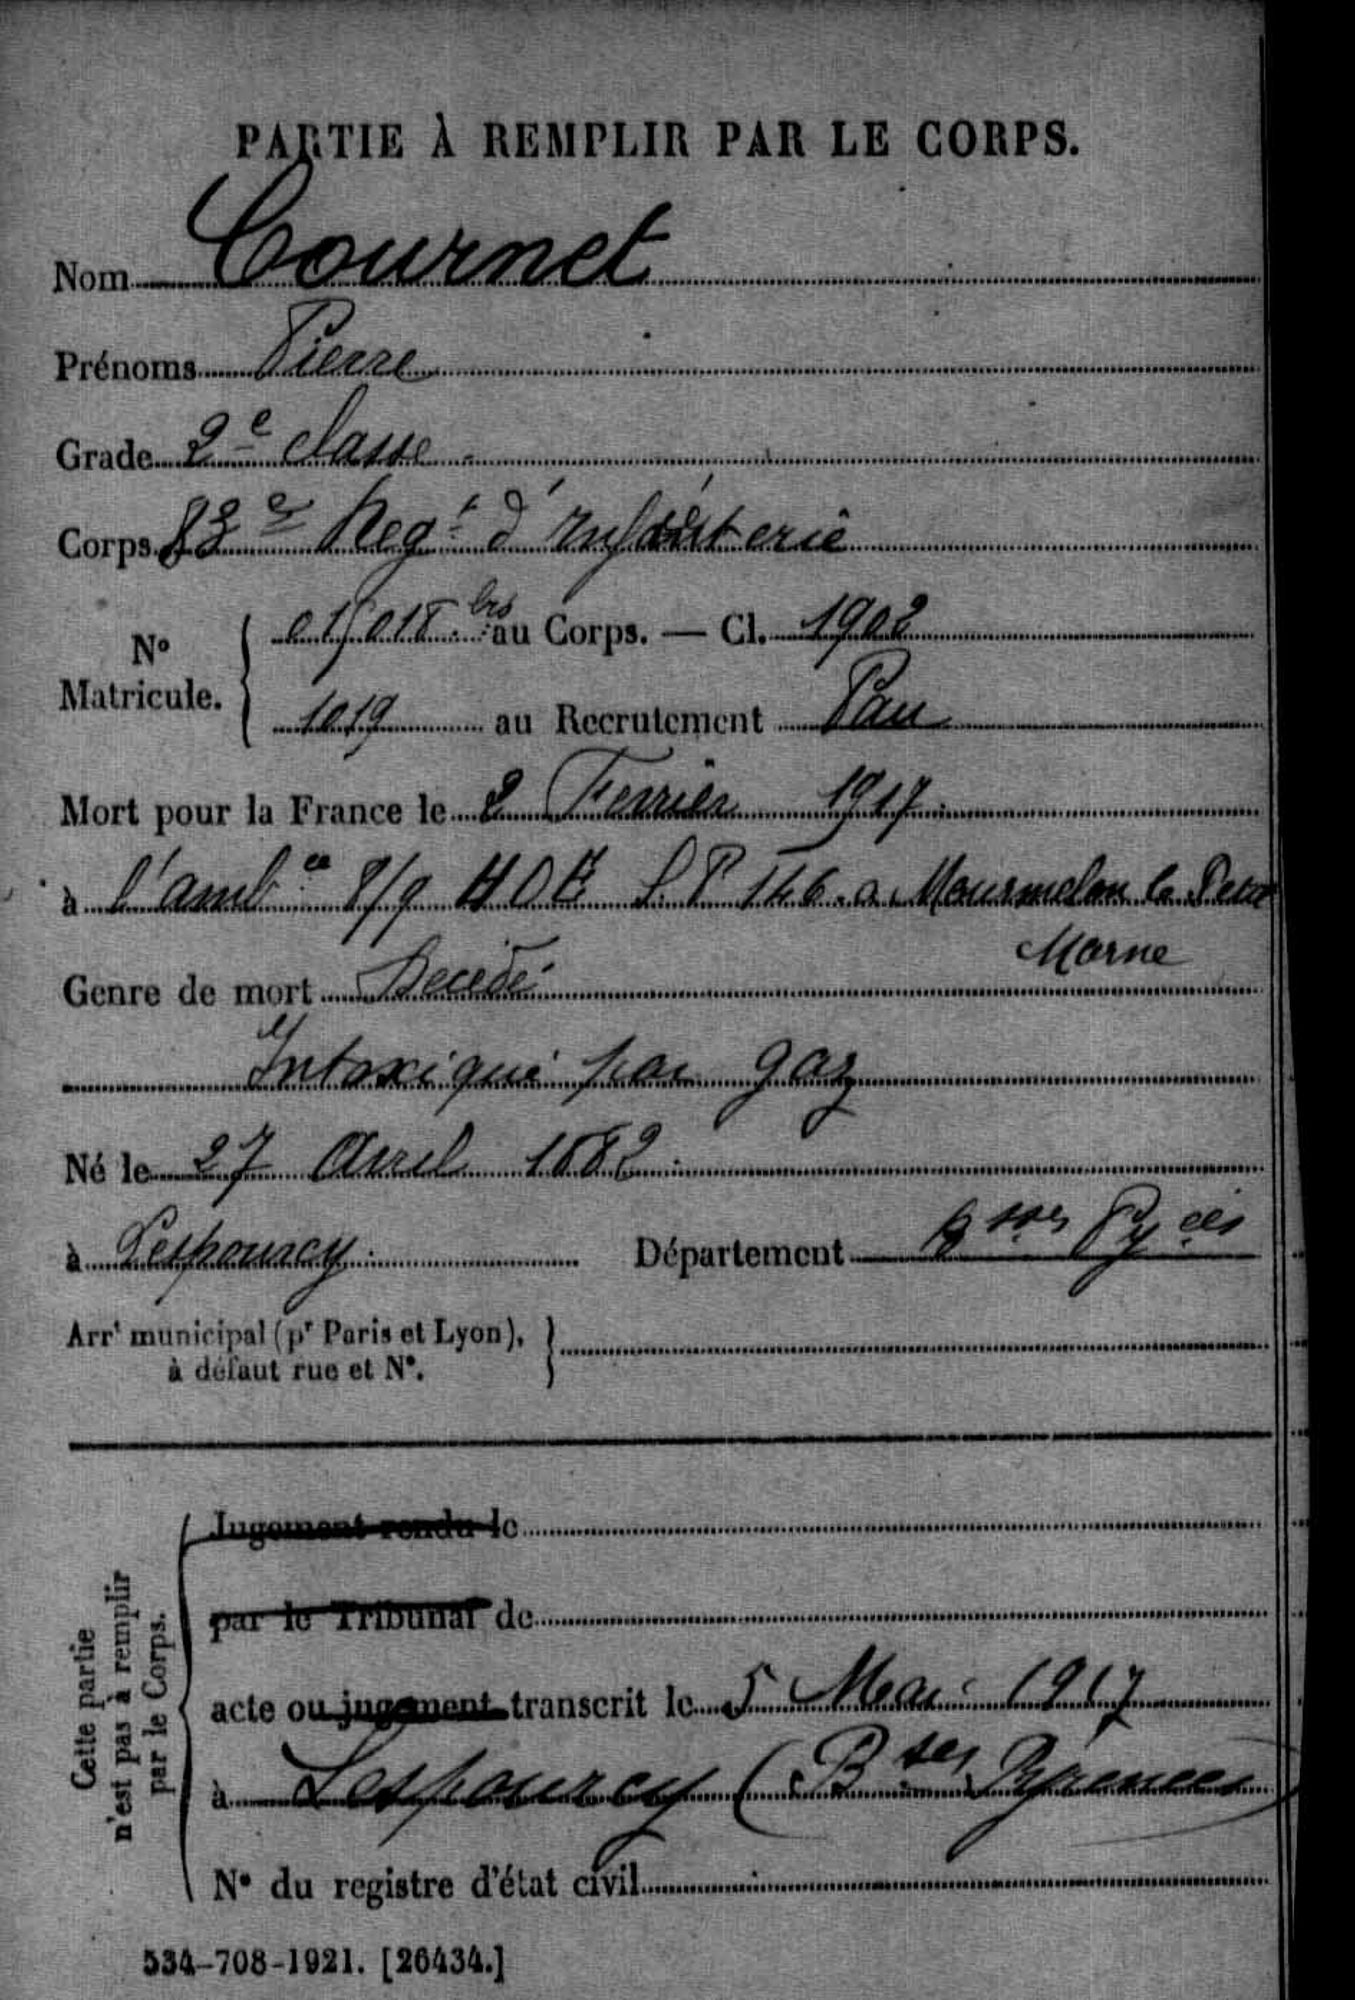 PARTIE À REMPLIR PAR LE CORPS.
Nom Cournet
Prénoms Pierre
Grade 2e classe
Corps 83e Regt d'Infanterie
No Matricule. 01/018 bis au Corps. — Cl. 1902
1019 au Recrutement Pau
Mort pour la France le 2 Fevrier 1917
à l'ambce 8/9 HOE S.P 146 a Mourmelon le Petit
Marne
Genre de mort Decédé
Intoxiqué par gaz
Né le 27 Avril 1882
à Lespourcy Département Bses Pyées
Arrt municipal (pr Paris et Lyon),
à défaut rue et No.
Cette partie
n'est pas à remplir
par le Corps.
Jugement rendu le
par le Tribunal de
acte ou jugement transcrit le 5 Mai 1917
à Lespourcy (Bses Pyrénées)
No du registre d'état civil
534-708-1921. [26434.]